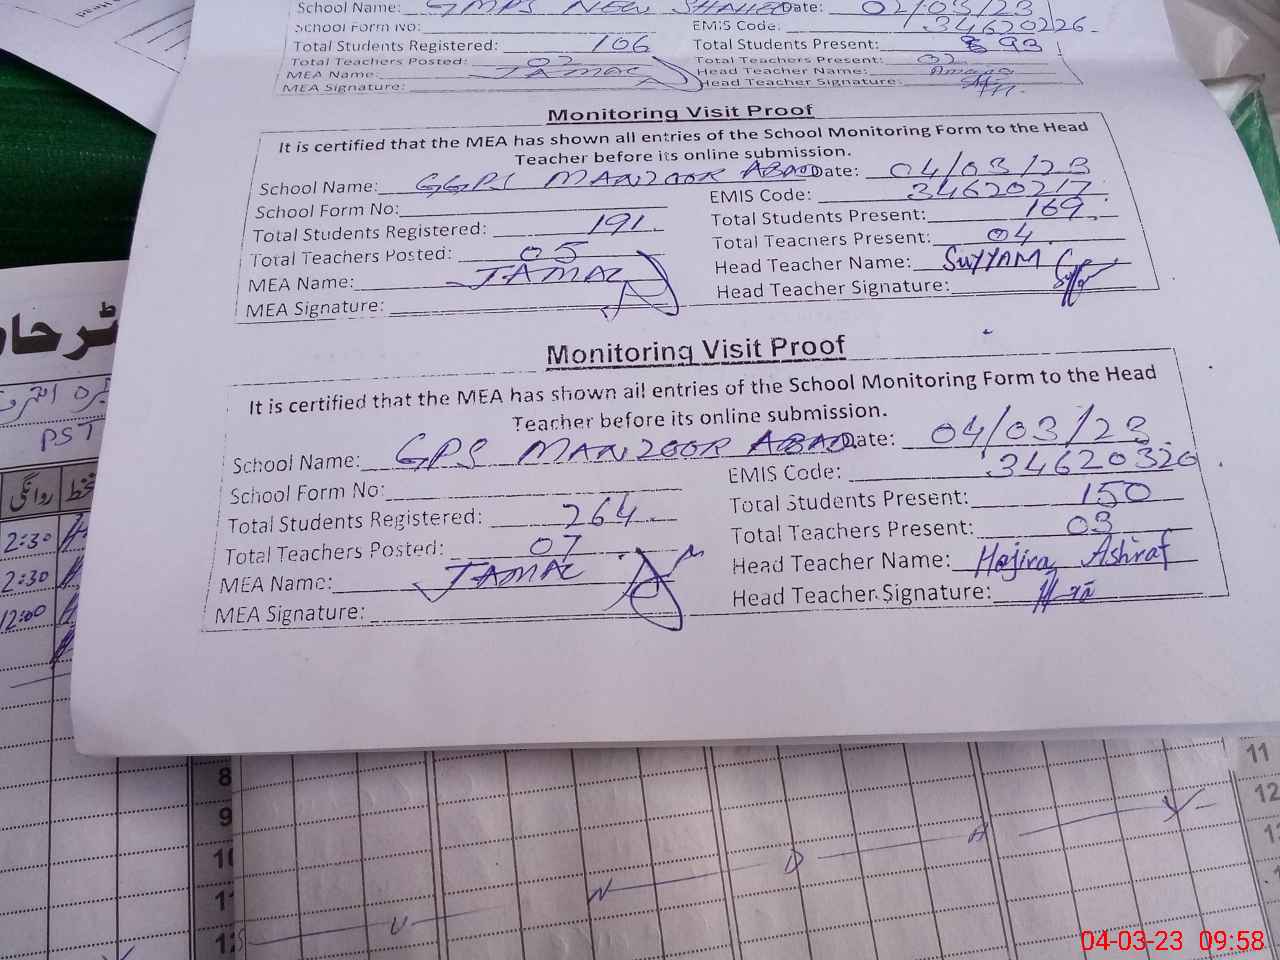 School Name: GMPS NEW Date: 02/03/23
School Form No: EMIS Code: 34620226
Total Students Registered: 106 Total Students Present: 93
Total Teachers Posted: 02 Total Teachers Present: 02
MEA Name: JAMAL Head Teacher Name:
MEA Signature: Head Teacher Signature:
Monitoring Visit Proof
It is certified that the MEA has shown all entries of the School Monitoring Form to the Head
Teacher before its online submission.
School Name: GGPS MANZOOR ABAD Date: 04/03/23
School Form No: EMIS Code: 34620217
Total Students Registered: 191 Total Students Present: 169
Total Teachers Posted: 05 Total Teachers Present: 04
MEA Name: JAMAL Head Teacher Name: SUYYAM
MEA Signature: Head Teacher Signature:
Monitoring Visit Proof
It is certified that the MEA has shown all entries of the School Monitoring Form to the Head
Teacher before its online submission.
School Name: GPS MANZOOR ABAD Date: 04/03/23
School Form No: EMIS Code: 34620320
Total Students Registered: 264 Total Students Present: 150
Total Teachers Posted: 07 Total Teachers Present: 03
MEA Name: JAMAL Head Teacher Name: Hajira Ashraf
MEA Signature: Head Teacher Signature:
PST
روانگی
2:30
2:30
12:00
8
9
11
12
11
12
U N D A Y
04-03-23 09:58